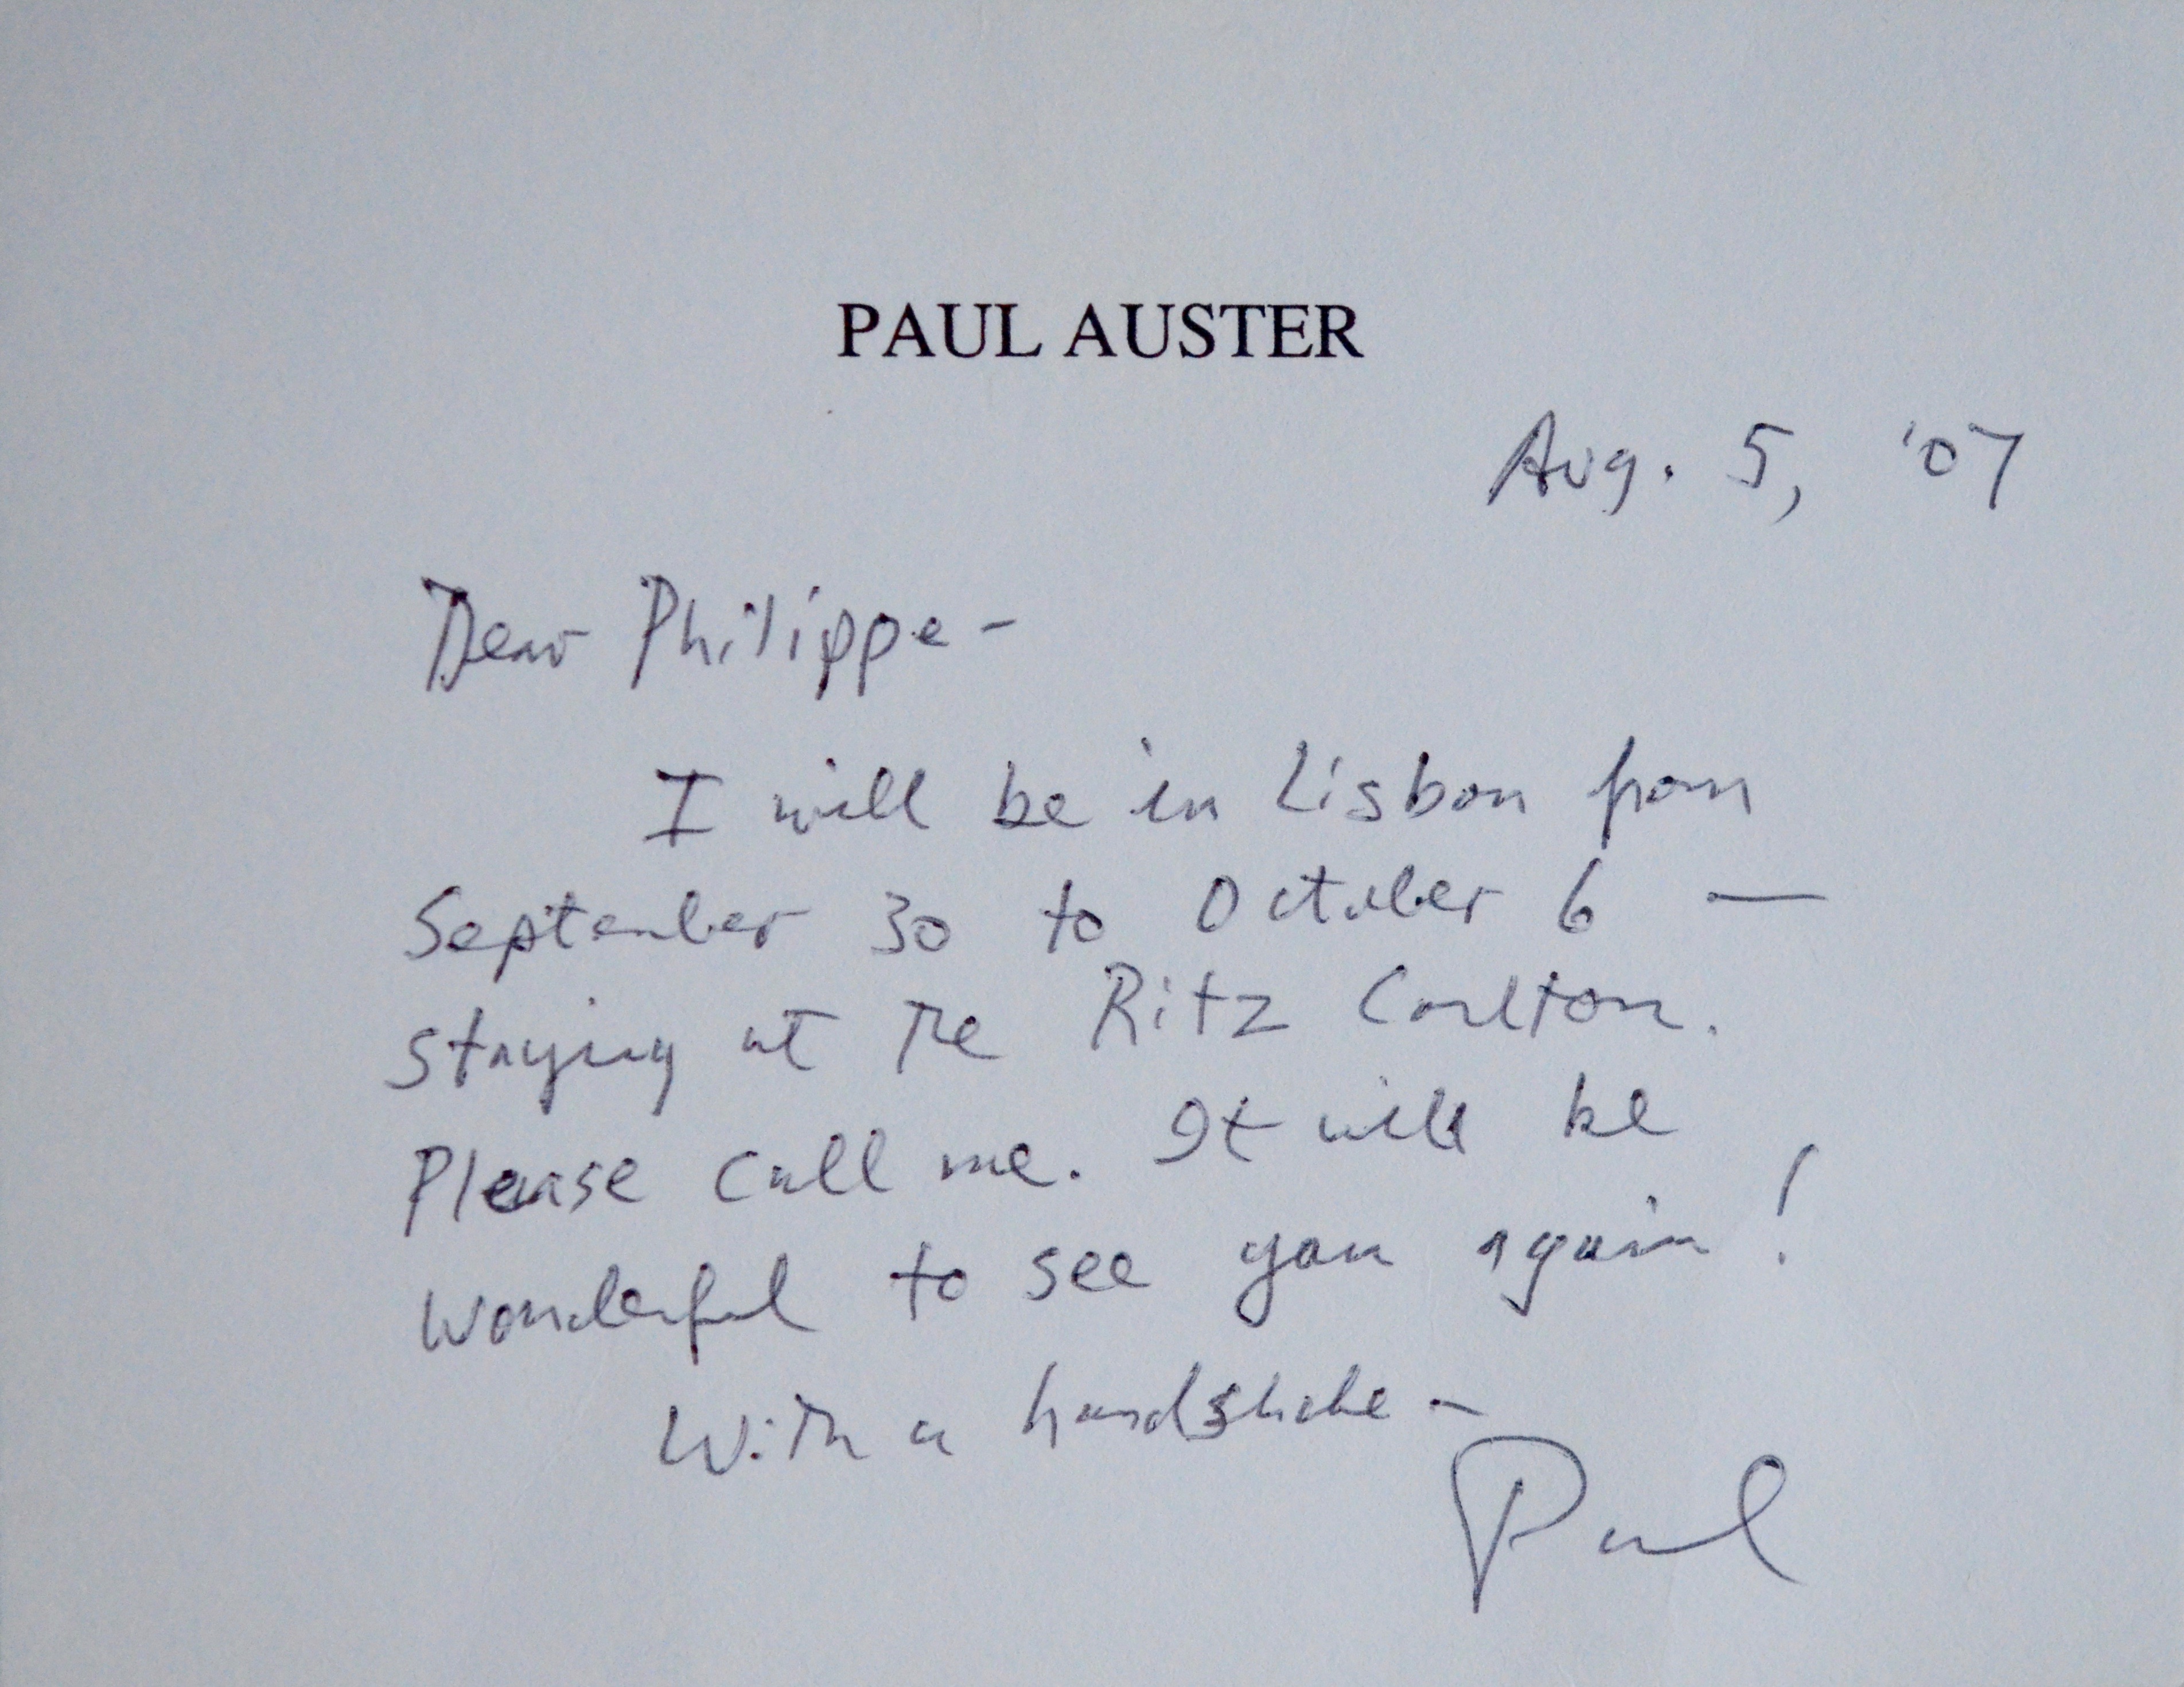 PAUL AUSTER
Aug. 5, '07
Dear Philippe –
I will be in Lisbon from
September 30 to October 6 —
staying at the Ritz Carlton.
Please call me. It will be
wonderful to see you again!
With a handshake –
Paul